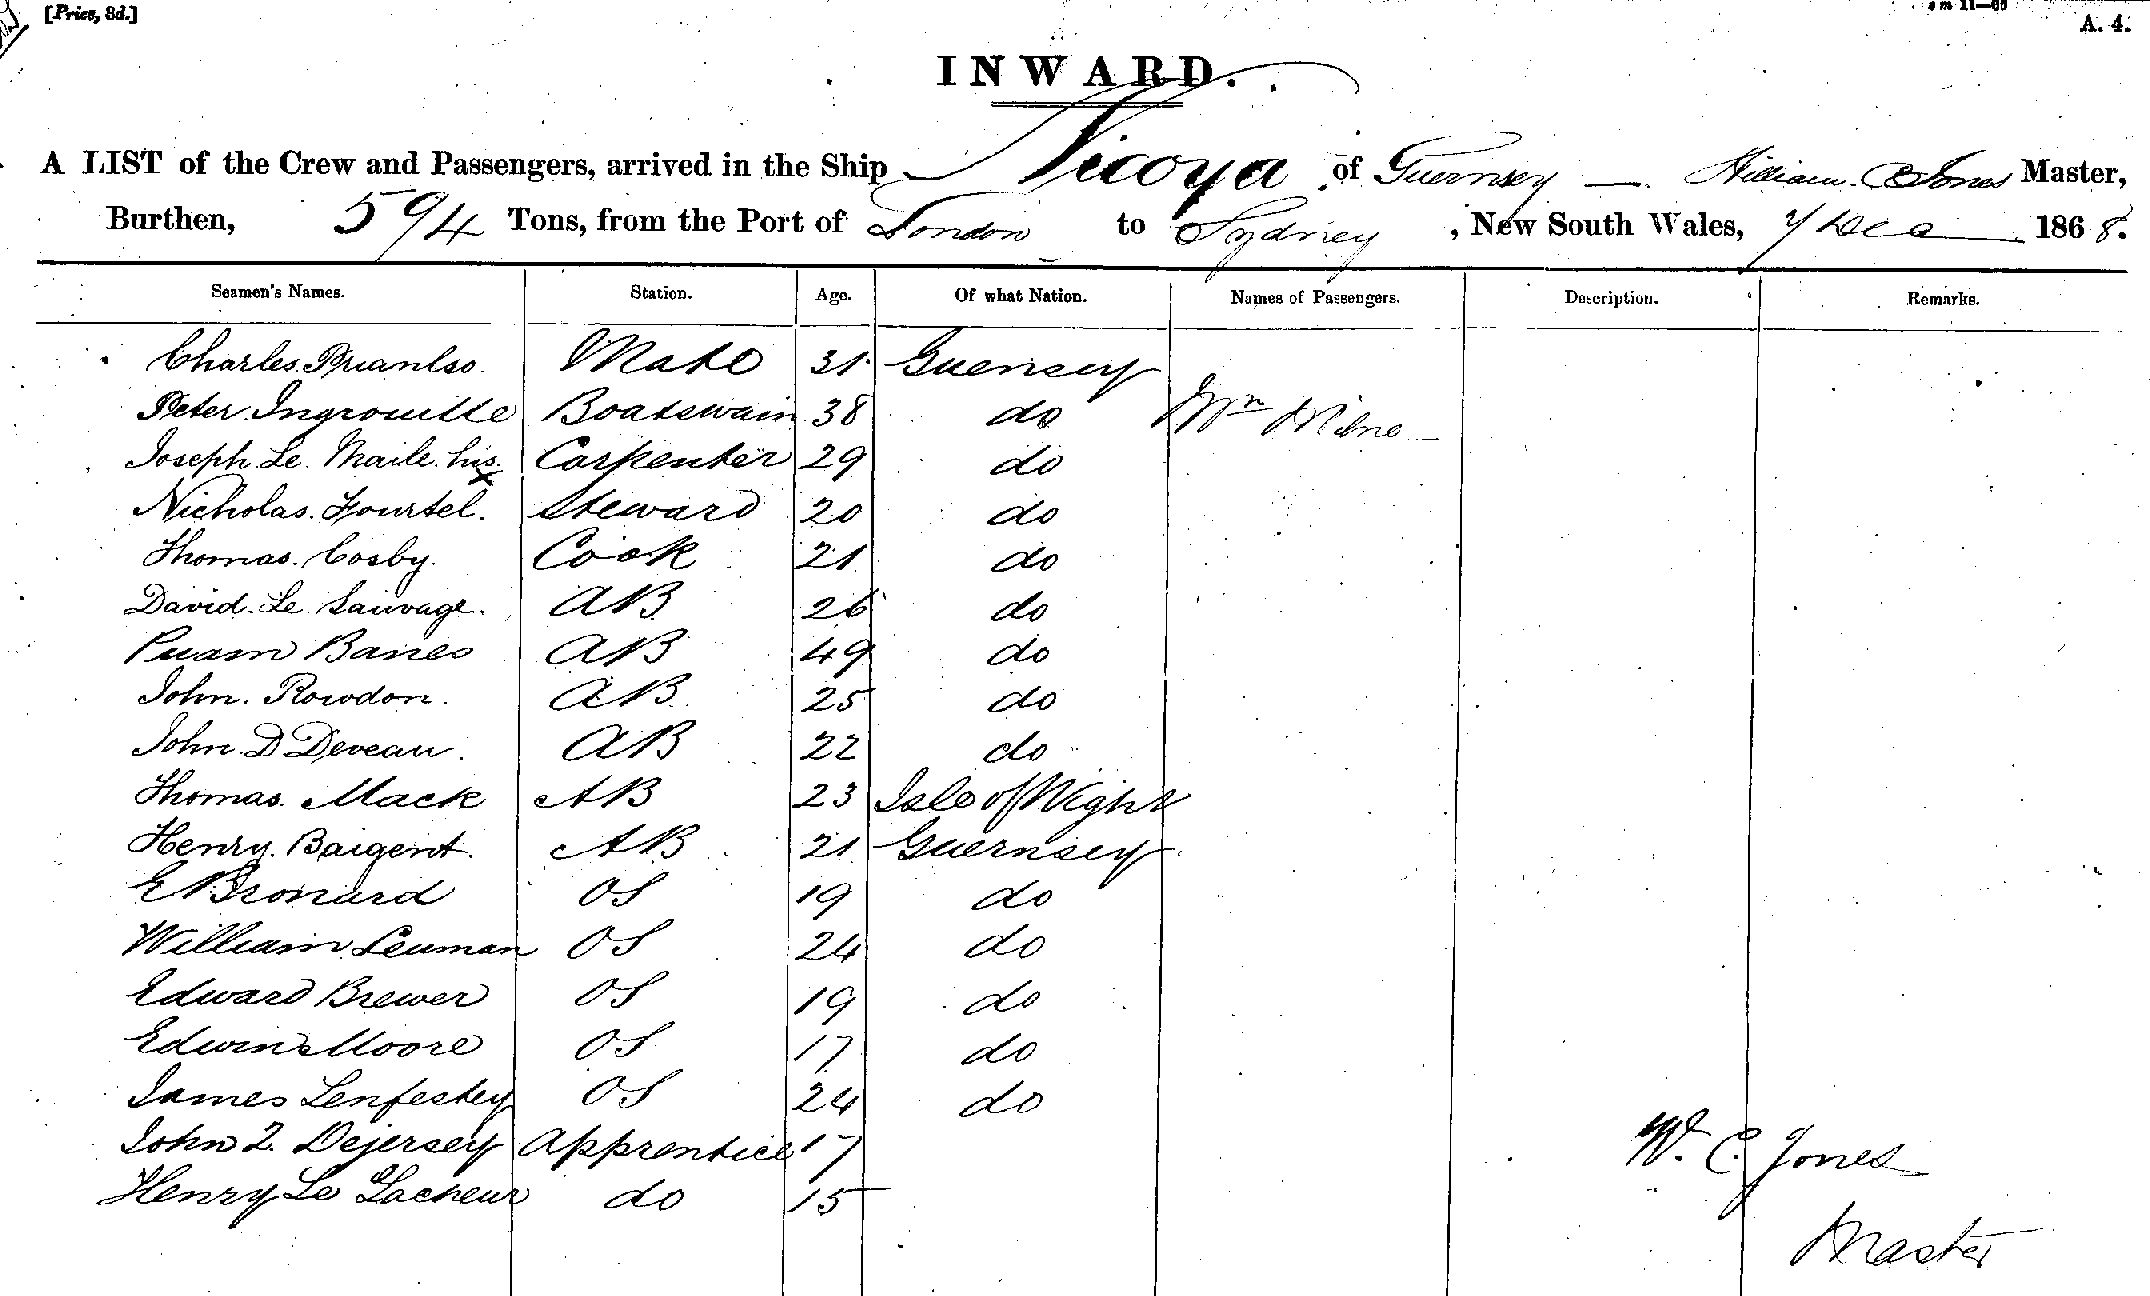 [Price, 3d.]
A. 4.
INWARD.
A LIST of the Crew and Passengers, arrived in the Ship Nicoya of Guernsey — William C Jones Master,
Burthen, 594 Tons, from the Port of London to Sydney, New South Wales, 7 Dec 1868.
Seamen's Names. Station. Age. Of what Nation. Names of Passengers. Description. Remarks.
Charles Mate 31 Guernsey
Peter Ingrouille Boatswain 38 do Mrs Milne
Joseph Le Maile his x Carpenter 29 do
Nicholas Steward 20 do
Thomas Cosby. Cook 21 do
David Le Sauvage. AB 26 do
AB 49 do
John. Rowdon. AB 25 do
John D Deveau. AB 22 do
Thomas Mack AB 23 Isle of Wight
Henry. Baigent. AB 21 Guernsey
E Bronard OS 19 do
William Leuman OS 24 do
Edward Brewer OS 19 do
Edwin Moore OS 17 do
James Lenfestey OS 24 do
John Dejersey Apprentice 17
Henry Le Lacheur do 15
W. C. Jones
Master